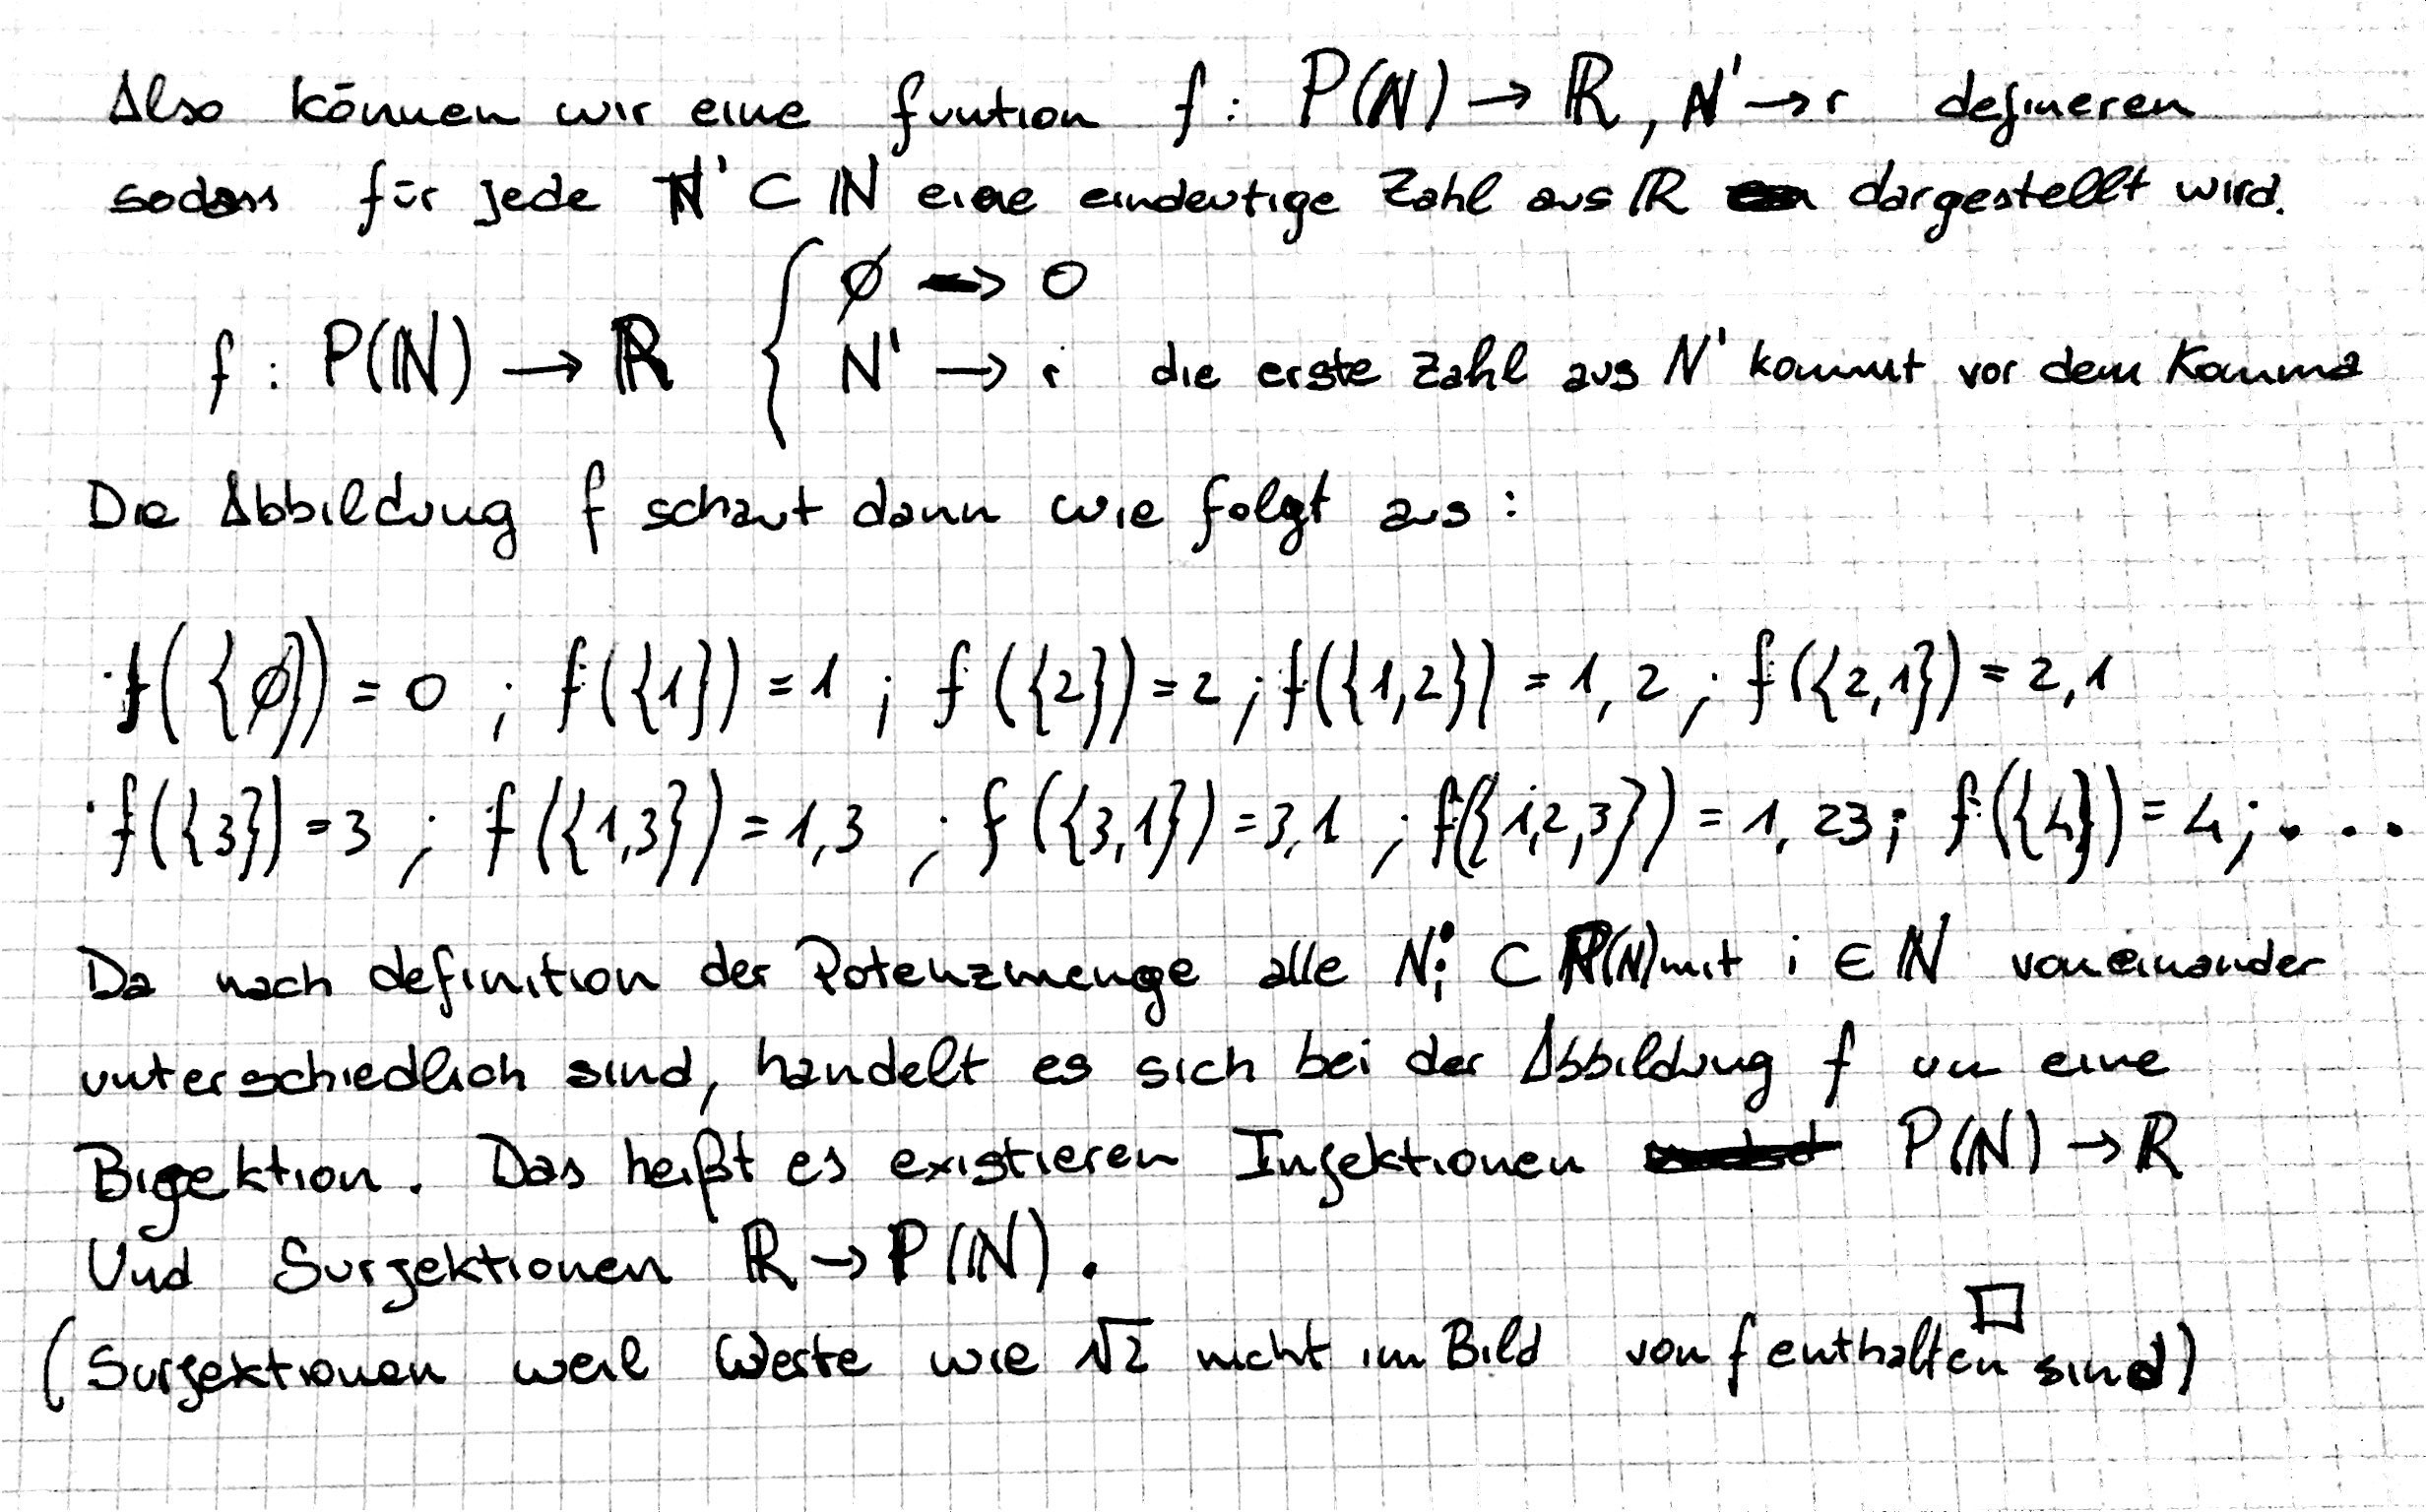 Also können wir eine funtion f: P(ℕ) → ℝ, N' → r defineren
sodass für jede N' ⊂ ℕ eine eindeutige Zahl aus ℝ dargestellt wird.
∅ → 0
f : P(ℕ) → ℝ { N' → r die erste Zahl aus N' kommt vor dem Komma
Die Abbildung f schaut dann wie folgt aus :
· f({∅}) = 0 ; f({1}) = 1 ; f({2}) = 2 ; f({1,2}) = 1,2 ; f({2,1}) = 2,1
· f({3}) = 3 ; f({1,3}) = 1,3 ; f({3,1}) = 3,1 ; f({1,2,3}) = 1,23 ; f({4}) = 4 ; . . .
Da nach definition der Potenzmenge alle N'ᵢ ⊂ P(ℕ) mit i ∈ ℕ voneinander
unterschiedlich sind, handelt es sich bei der Abbildung f um eine
Bijektion. Das heißt es existieren Injektionen P(ℕ) → ℝ
Und Surjektionen ℝ → P(ℕ).
□
(Surjektionen weil Werte wie √2 nicht im Bild von f enthalten sind)